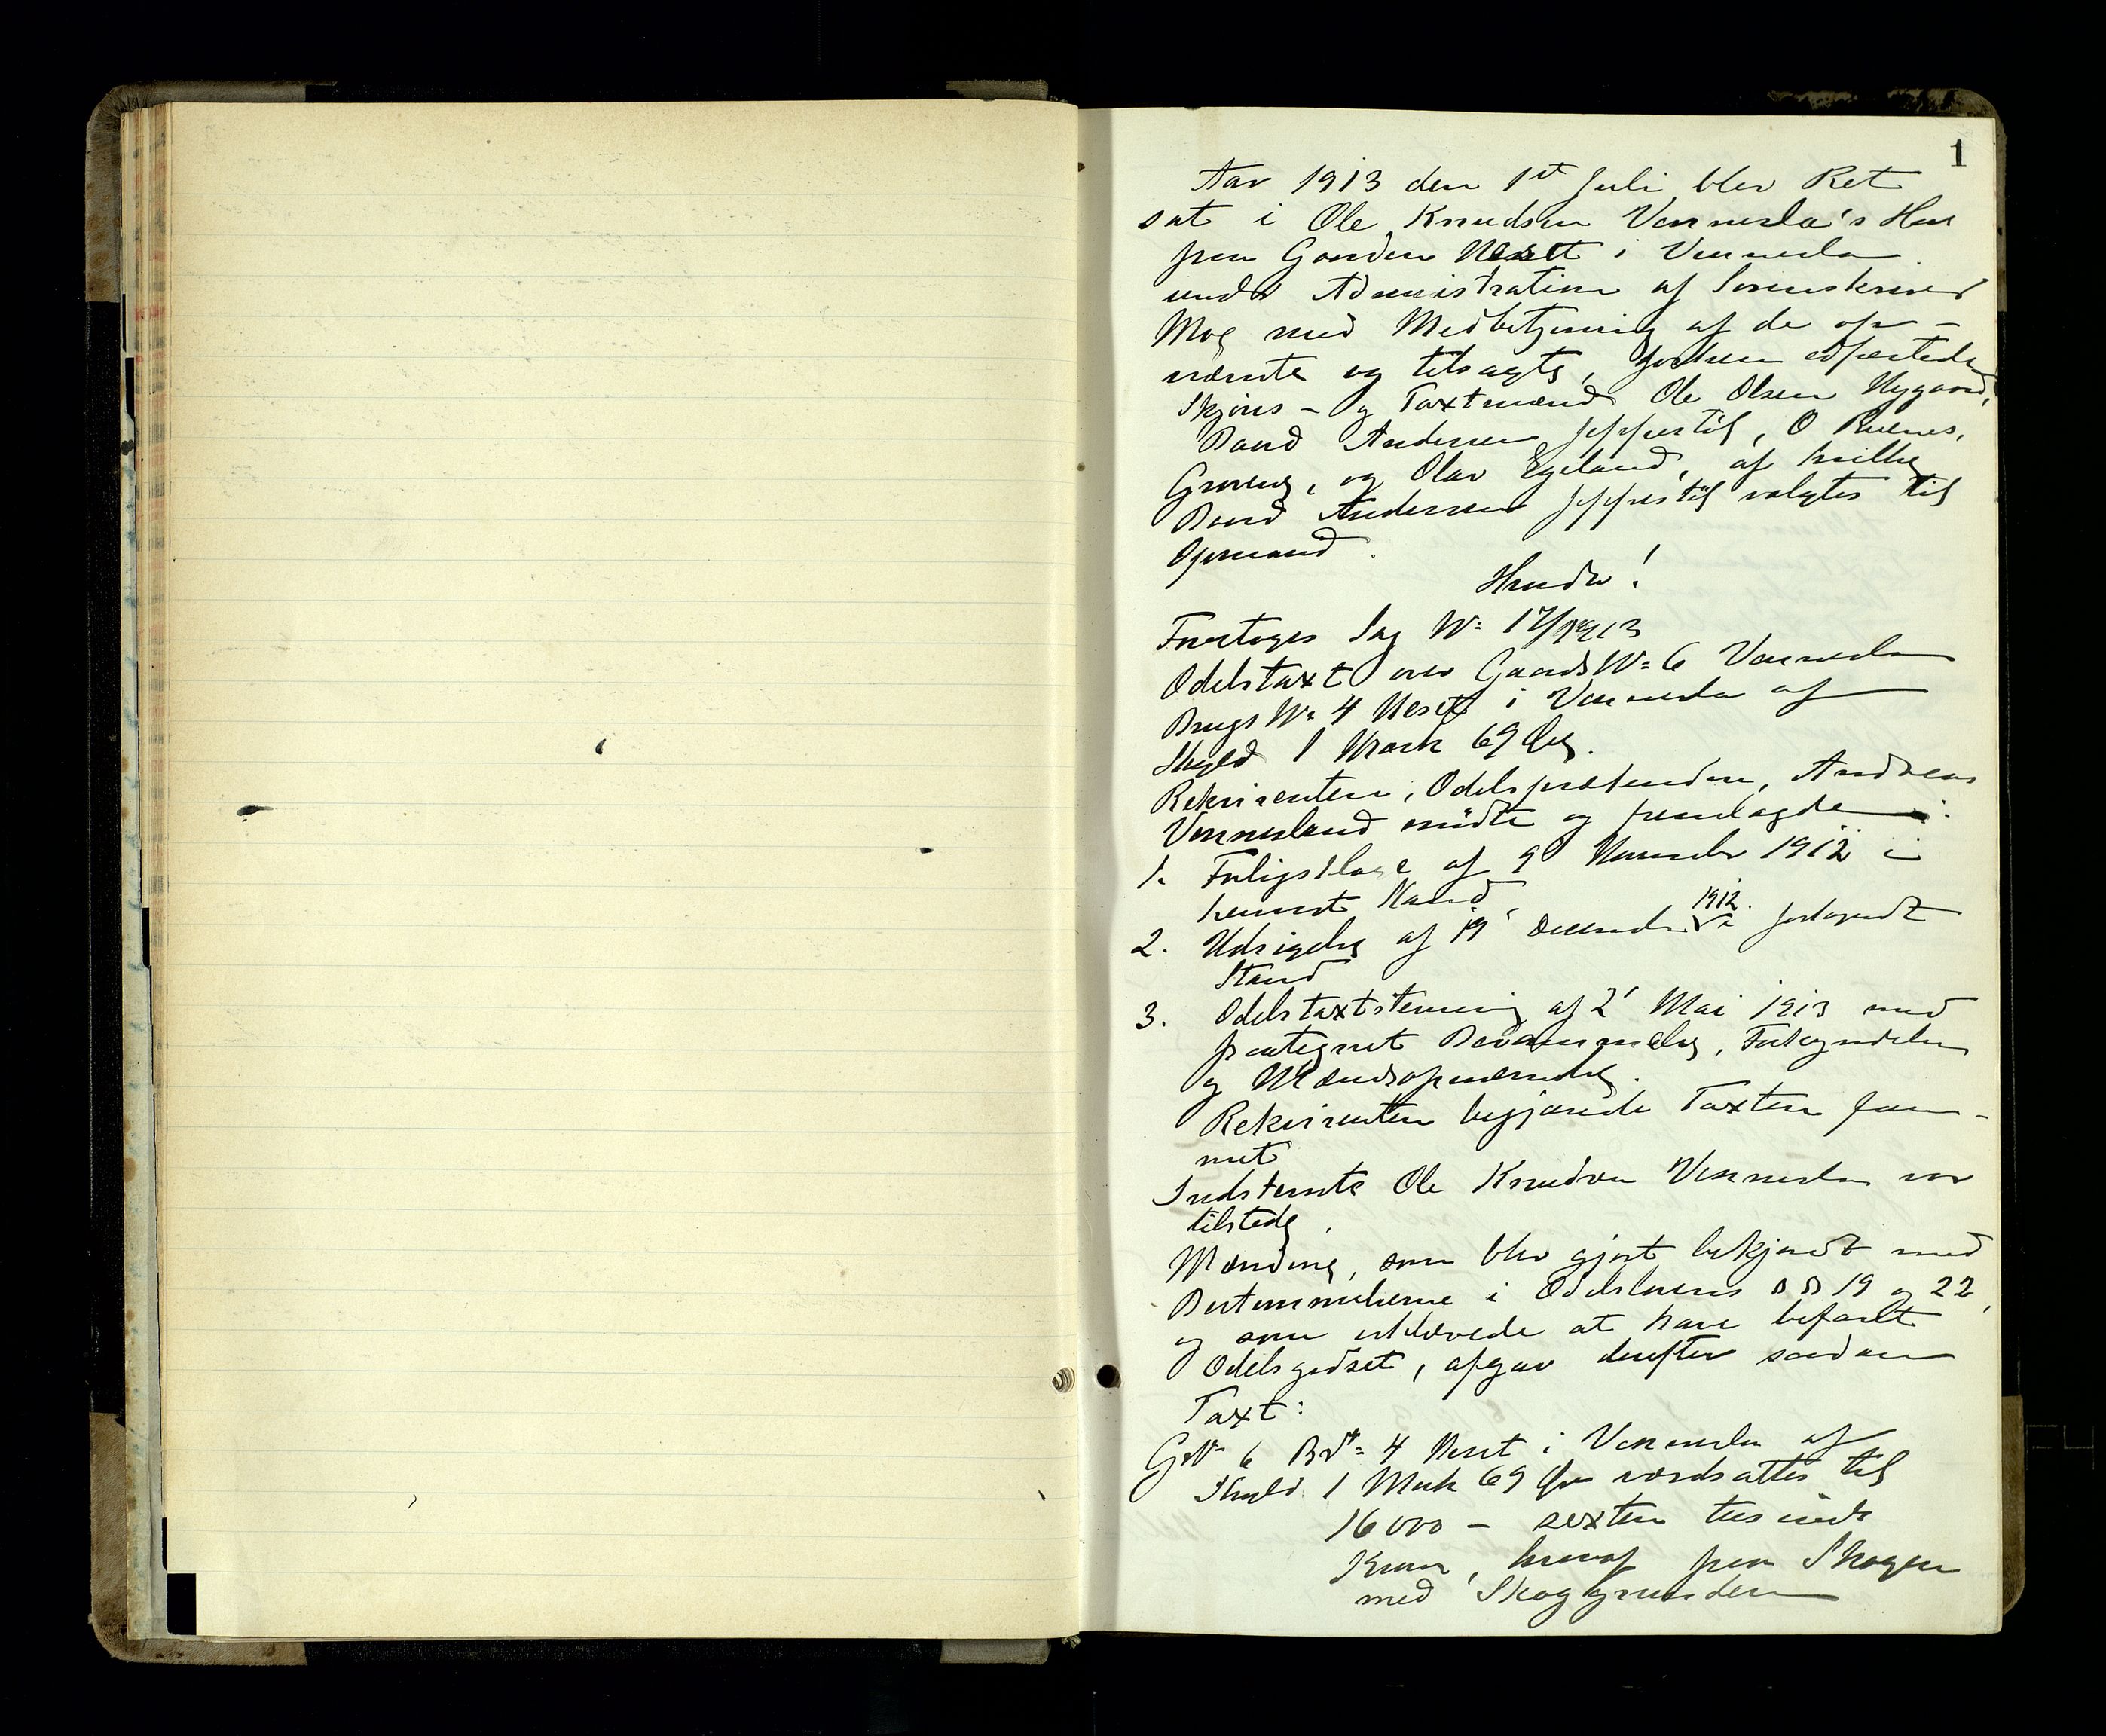 1
Aar 1913 den 1st Juli blev Ret
sat i Ole Knudsen Vennesla's Hus
paa Gaarden Neset i Vennesla
under Administration af Sorenskriver
Moe med Medbetjening af de op-
nævnte og tilsagte, forhen edfæstede
Skjøns- og Taxtmænd Ole Olsen Nygaard,
Baard Andersen Jeppestøl, O
og Olav Egeland, af hvilke
Baard Andersen Jeppestøl valgtes til
Opmand.
Hvorda!
Foretoges Sag No 17/1913
Odelstaxt over Gaards No 6 Vennesla
Brugs No 4 Neset i Vennesla af
Skyld 1 Mark 69 Øre.
Rekvirenten, Odelsprætendenten, Andreas
Vennesland mødte og fremlagde:
1. Forligsklage af 9' November 1912 i
Stand
2. Udsigelse af 19' December 1912 i forkyndt
Stand
3. Odelstaxtstevning af 2' Mai 1913 med
paategnet Berammelse, Forkyndelse
og Mændsopnævnelse.
Rekvirenten begjærede Taxten frem-
met
Indstevnte Ole Knudsen Vennesla var
tilstede.
Mændene, som blev gjort bekjendt med
Bestemmelserne i Odelslovens §§ 19 og 22,
og som erklærede at have befaret
Odelsgodset, afgav derefter saadan
Taxt:
GNo 6 BNo 4 Neset i Vennesla af
Skyld 1 Mark 69 Øre værdsattes til
16000 - sexten tusinde
Kroner, hvoraf paa Skogen
med Skoggrunden